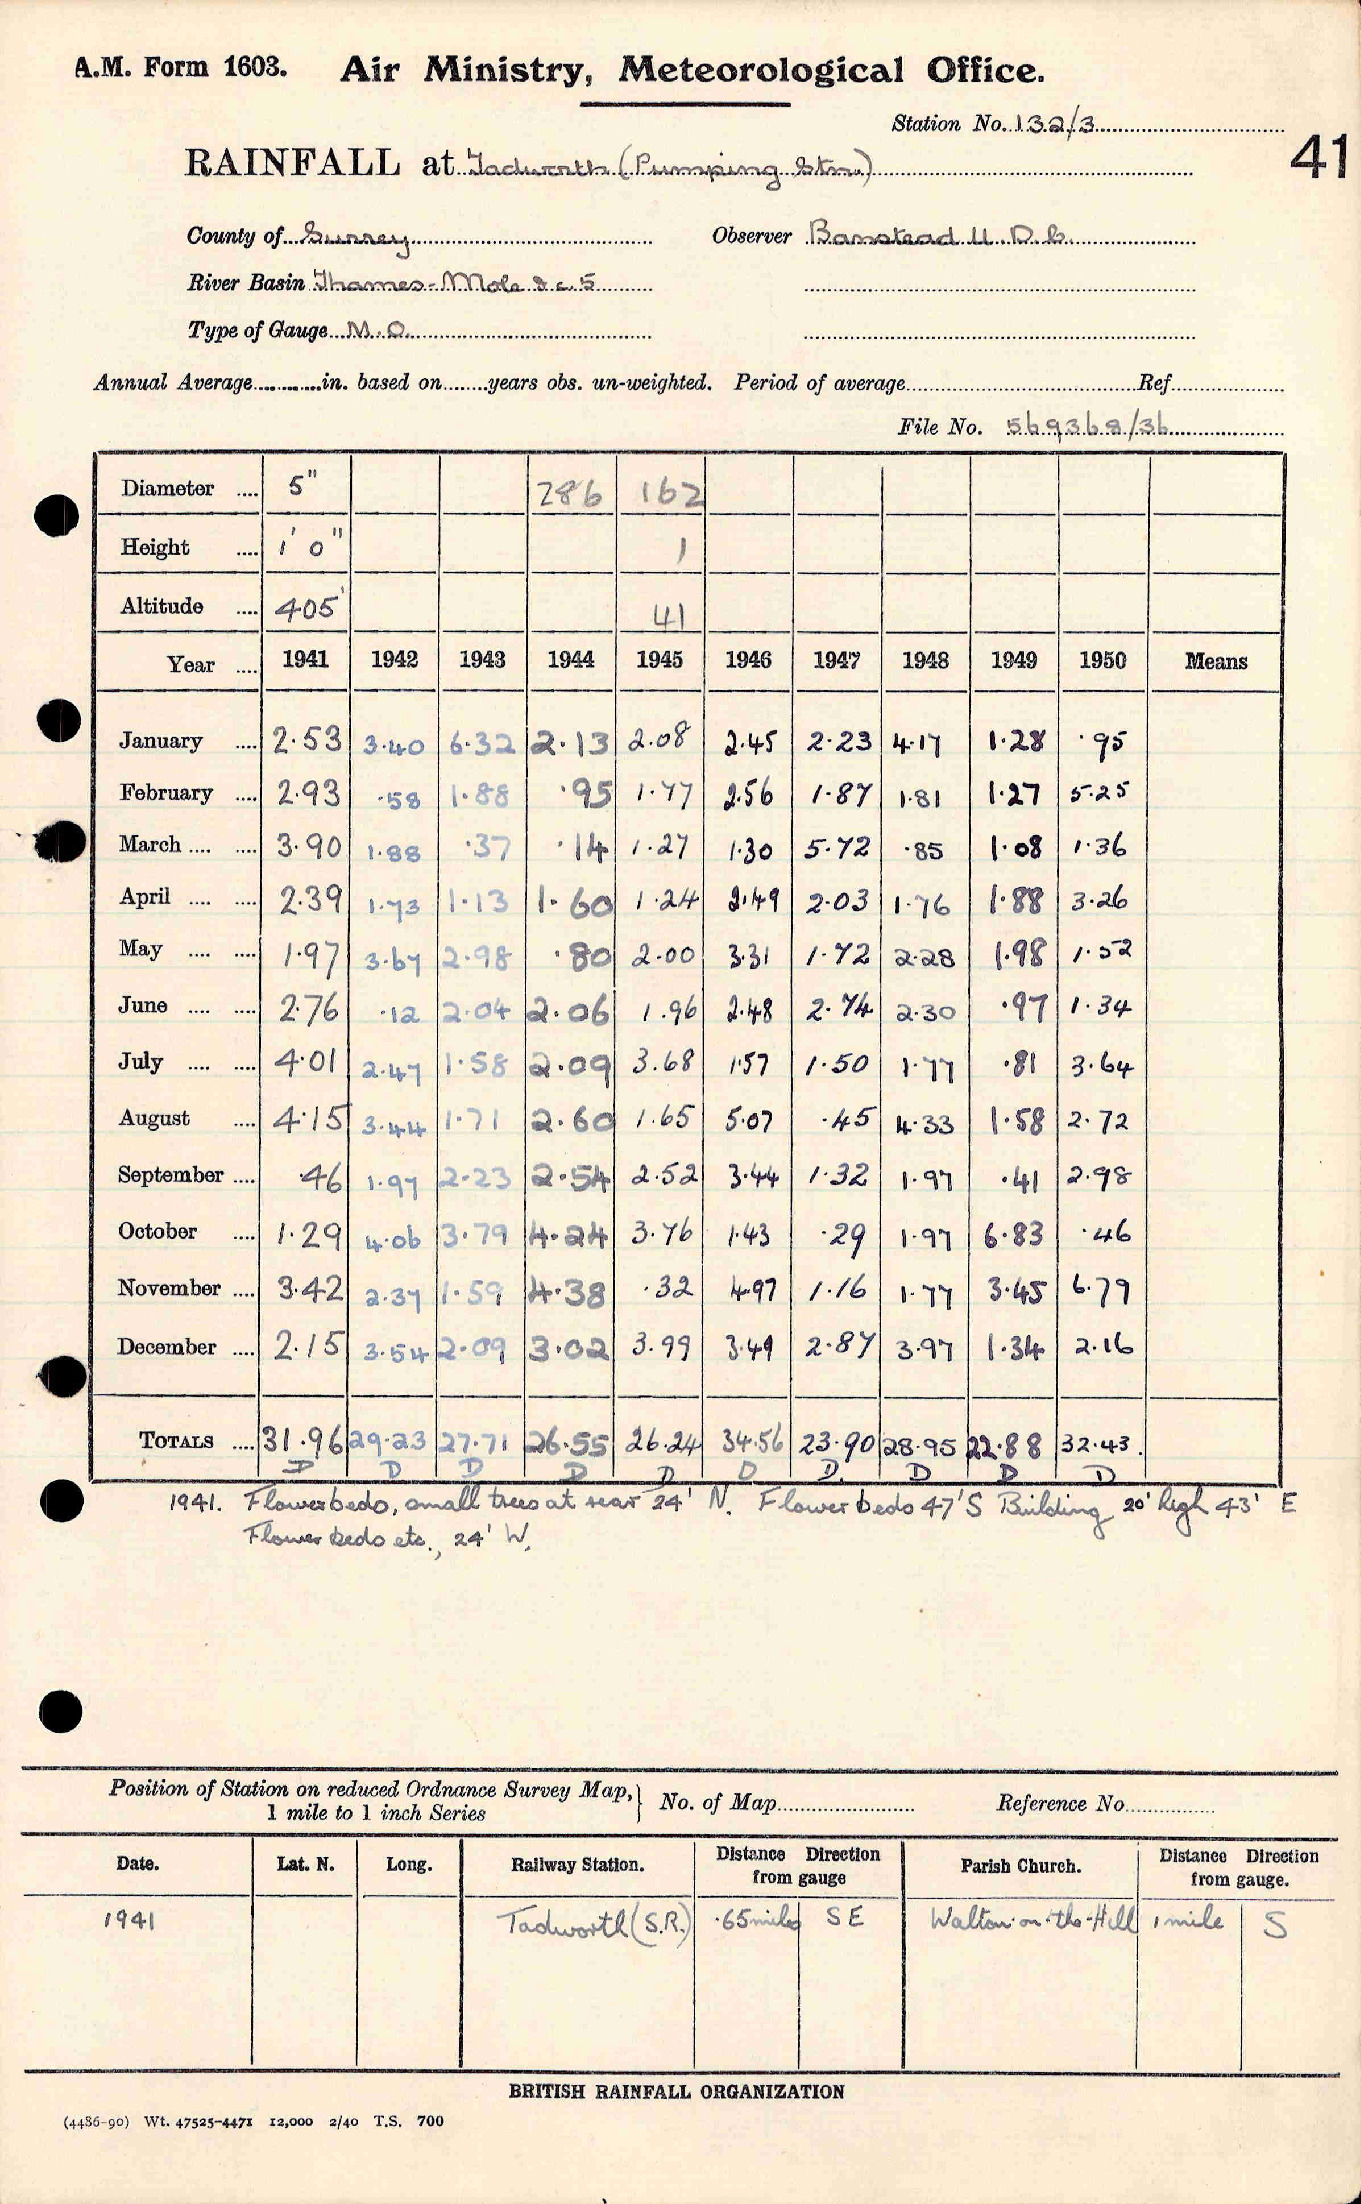 A.M. Form 1603. Air Ministry, Meteorological Office.
Station No. 132/3
41
RAINFALL at Tadworth (Pumping Stn.)
County of Surrey Observer Banstead U.D.C.
River Basin Thames-Mole &c. 5
Type of Gauge M.O.
Annual Average in. based on years obs. un-weighted. Period of average Ref
File No. 569368/36
Diameter .... 5" 286 162
Height .... 1' 0" 1
Altitude .... 405' 41
Year .... 1941 1942 1943 1944 1945 1946 1947 1948 1949 1950 Means
January .... 2.53 3.40 6.32 2.13 2.08 2.45 2.23 4.17 1.28 .95
February .... 2.93 .58 1.88 .95 1.77 2.56 1.87 1.81 1.27 5.25
March .... .... 3.90 1.88 .37 .14 1.27 1.30 5.72 .85 1.08 1.36
April .... .... 2.39 1.73 1.13 1.60 1.24 2.49 2.03 1.76 1.88 3.26
May .... .... 1.97 3.67 2.98 .80 2.00 3.31 1.72 2.28 1.98 1.52
June .... .... 2.76 .12 2.04 2.06 1.96 2.48 2.74 2.30 .97 1.34
July .... .... 4.01 2.47 1.58 2.09 3.68 1.57 1.50 1.77 .81 3.64
August .... 4.15 3.44 1.71 2.60 1.65 5.07 .45 4.33 1.58 2.72
September .... .46 1.97 2.23 2.54 2.52 3.44 1.32 1.97 .41 2.98
October .... 1.29 4.06 3.79 4.24 3.76 1.43 .29 1.97 6.83 .46
November .... 3.42 2.37 1.59 4.38 .32 4.97 1.16 1.77 3.45 6.79
December .... 2.15 3.54 2.09 3.02 3.99 3.49 2.87 3.97 1.34 2.16
TOTALS .... 31.96 29.23 27.71 26.55 26.24 34.56 23.90 28.95 22.88 32.43.
D D D D D D D. D D D
1941. Flowerbeds, small trees at rear 24' N. Flower beds 47' S Building 20' high 43' E
Flower beds etc., 24' W.
Position of Station on reduced Ordnance Survey Map,} No. of Map Reference No
1 mile to 1 inch Series
Date. Lat. N. Long. Railway Station. Distance Direction from gauge Parish Church. Distance Direction from gauge.
1941 Tadworth (S.R.) .65 miles SE Walton-on-the-Hill 1 mile S
BRITISH RAINFALL ORGANIZATION
(4486-90) Wt. 47525-4471 12,000 2/40 T.S. 700